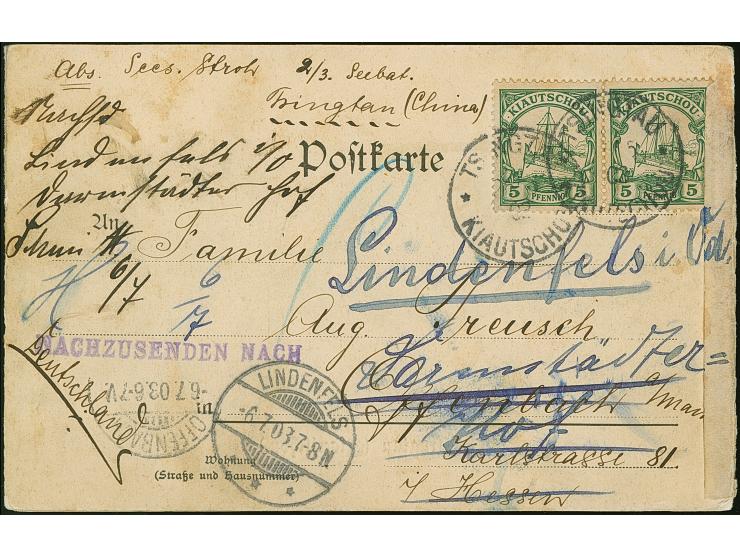 Abs. Sees. Stroh 2/3. Seebat.
Tsingtau (China)
Nachsd
Lindenfels i/O
Darmstädter Hof
KIAUTSCHOU
5 PFENNIG 5
KIAUTSCHOU
5 PFENNIG 5
KIAUTSCHOU
Postkarte
An
Familie
6/7
6/7
Lindenfels i. Od.
Aug Kreusch
Darmstädter=
Hof
NACHZUSENDEN NACH
Deutschland
OFFENBACH
-6.7.03.6-7V.
LINDENFELS
-6.7.03.7-8N
in Offenbach a/Main
Wohnung
(Straße und Hausnummer)
Karlstrasse 81.
i/ Hessen